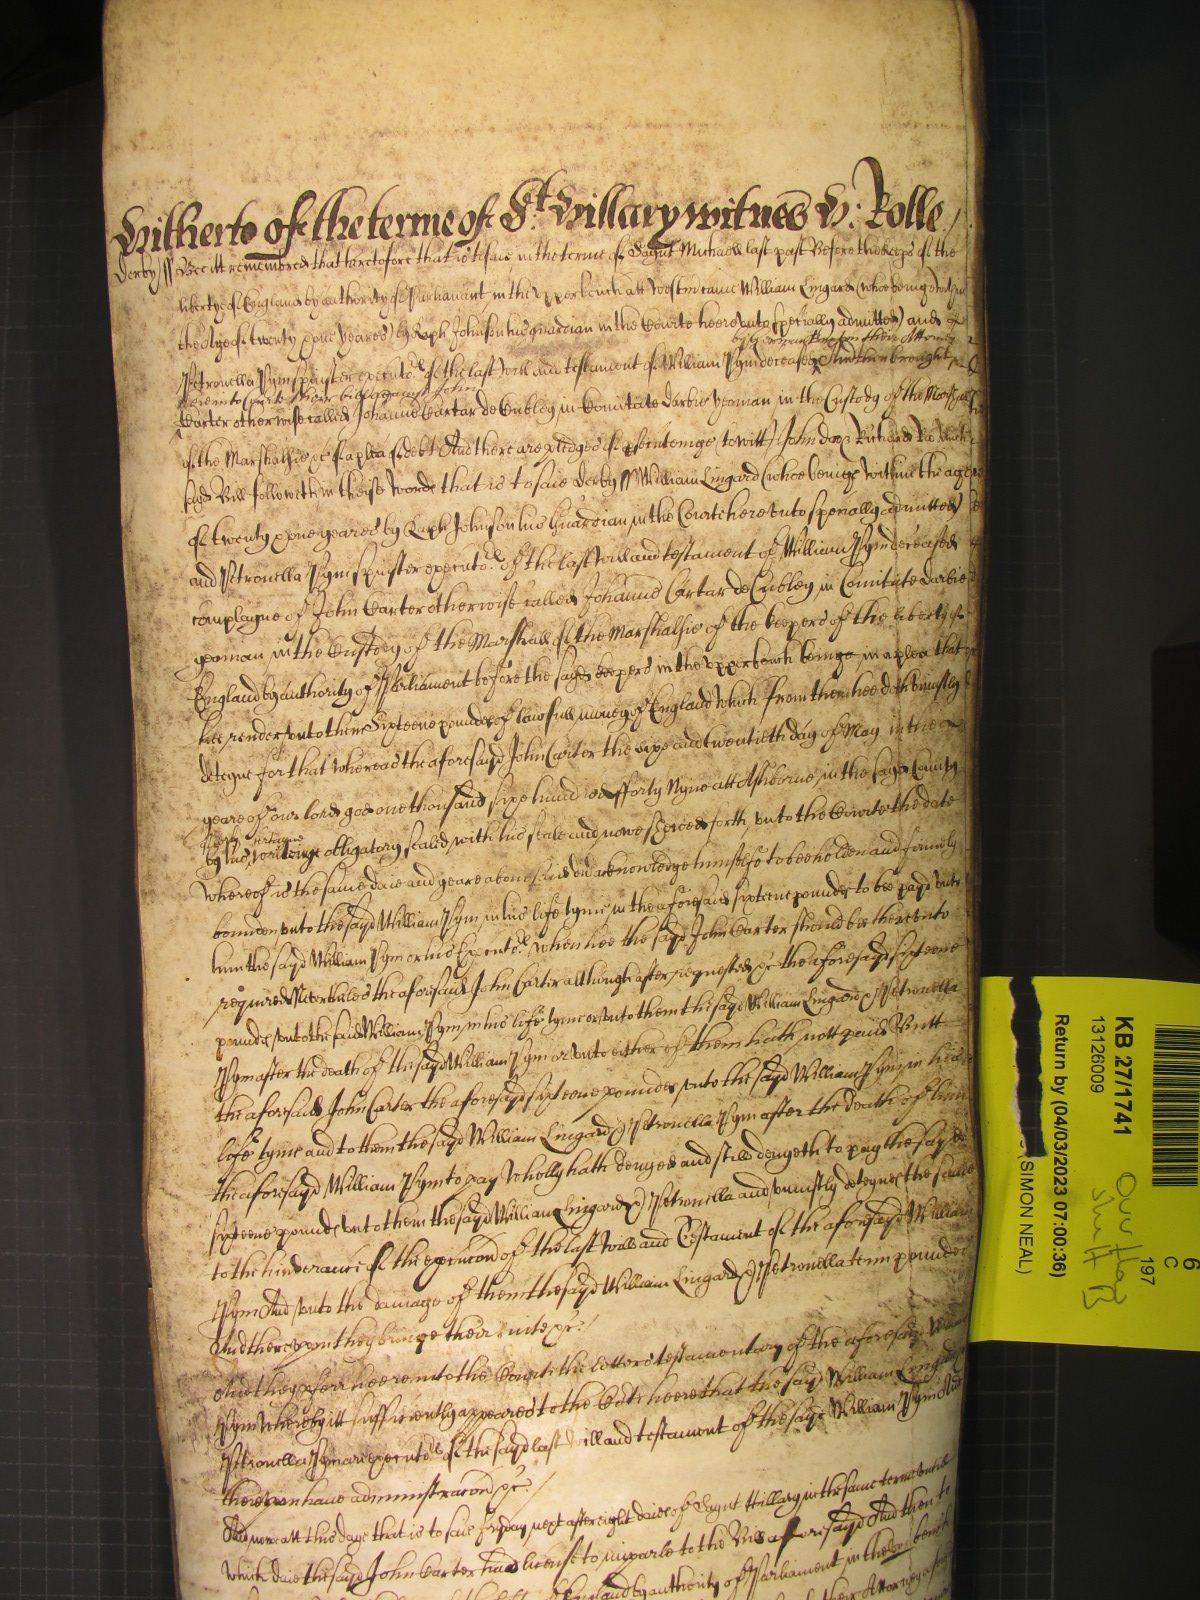 Hitherto of the terme of St. Hillary witnes H: Rolle
Derby ss Bee itt remembred that heretofore that is to saie in the terme of Saynt Michaell last past Before the keeps of the
libertye of England by authority of Parliament in the upper bench att Westm came William Lingard (whoe being within
the Age of twenty one yeares) by Raph Johnson his guardian in the Courte heere unto specially admitted) and
by German their Attorney
Petronella Pym spinster executors of the last will and testament of William Pym deceased And then brought
heere into Courte their bill against John
Carter otherwise called Johannes Cartar de Cubley in Comitate Darbie yoman in the Custody of the Marshall
of the Marshalsie &c of a plea of debt And there are pledges of prosecuteinge to witt John doo & Richard Roo which
sayd Bill followeth in theise words that is to saie Derby ss William Lingard (whoe beinge within the age
of twenty one yeares by Raph Johnson his Guardian in the Courte here unto specially admitted)
and Petronella Pym spinster executors of the last will and testament of William Pym deceased
complayne of John Carter otherwise called Johannes Cartar de Cubley in Comitate Darbie
yoman in the Custody of the Marshall of the Marshalsie of the keepers of the liberty of
England by authority of Parliament before the sayd keepers in the upper bench beinge in a plea that
hee render unto them Sixteene poundes of lawfull money of England which from them hee doth uniustly
deteyne for that whereas the aforesayd John Carter the sixe and twentieth day of May in the
yeare of our lord god one thousand sixe hundred fforty Nyne att Ashborne in the sayd County
by his certayne writeinge obligatory sealed with his seale and nowe shewed forth unto the Courte the date
whereof is the same daie and yeare abovesaid did acknowledge himselfe to bee holden and firmely
bounden unto the sayd William Pym in his life tyme in the aforesaid sixteene poundes to bee payd unto
him the sayd William Pym or his Executors when hee the sayd John Carter should bee thereunto
required Neverthles the aforesaid John Carter although after requested &c the aforesayd sixteene
poundes unto the said William Pym in his life tyme or unto them the sayd William Lingard & Petronella
Pym after the death of the sayd William Pym or unto either of them hath nott paid Butt
the aforesaid John Carter the aforesayd sixteene poundes unto the sayd William Pym in his
life tyme and to them the sayd William Lingard & Petronella Pym after the death of him
the aforesayd William Pym to pay wholly hath denyed and still denyeth to pay the sayd
sixteene poundes unto them the sayd William Lingard & Petronella and uniustly deteynes the same
to the hinderance of the execucon of the last will and Testament of the aforesayd William
Pym And unto the damage of them the sayd William Lingard & Petronella tenn poundes
And thereupon they bringe their suite &c.
And they proferr heere into the Courte the letters testamentary of the aforesayd William
Pym whereby itt sufficiently appeares to the Courte heere that the sayd William Lingard &
Petronella Pym are executors of the sayd last will and testament of the sayd William Pym And
thereupon have administracon &c.
And nowe att this daye that is to saie fryday next after eight daies of Saynt Hillary in the same terme untill
which daie the sayd John Carter had licence to imparle to the Bill aforesayd And then to
of England by authority of Parliament in the upper bench
their Attorney
KB 27/1741
13126009
Return by (04/03/2023 07:00:36)
(SIMON NEAL)
6
C
197